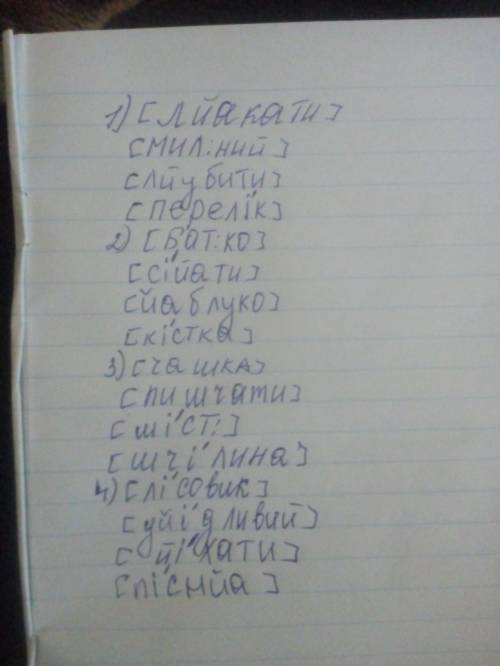 1) [лйакати]
[мил:ний]
[лйубити]
[перелі́к]
2) [ба́т:ко]
[сі́йати]
[йаблуко]
[кі́стка]
3) [чашка]
[пишчати]
[мі́ст:]
[шчі́лина]
4) [лі́совик]
[уйі́дливий]
[йі́хати]
[пі́снйа]